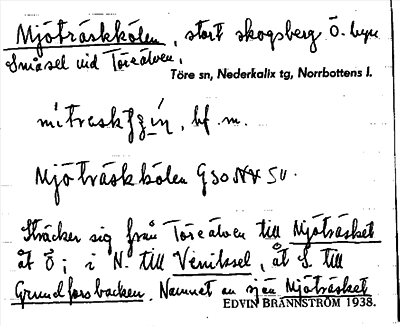 Mjöträskkölen, stort skogsberg Ö. byn
Småsel vid Töreälven.
Töre sn, Nederkalix tg, Norrbottens l.
bf. m.
Mjöträskkölen GSO NV SV.
Sträcker sig från Töreälven till Mjöträsket
åt Ö; i N. till Veniksel, åt S till
Grundforsbacken. Namnet av sjön Mjöträsket
EDVIN BRÄNNSTRÖM 1938.